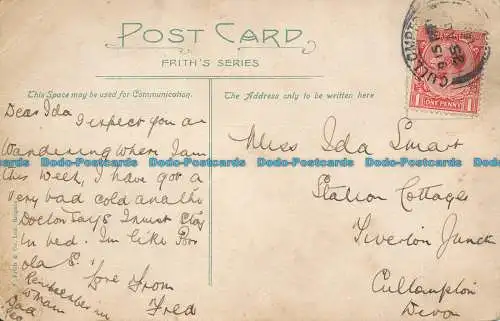 POST CARD
FRITH'S SERIES
This Space may be used for Communication.
The Address only to be written here
CULLOMPTON
ONE PENNY
Dear Ida
I expect you are
Wandering where I am
this week, I have got a
very bad cold and the
Doctor says I must stay
in bed. Im like Poor
ola S.
love from
Fred
Remember me
to Mam
Dad
Miss Ida Smart
Station Cottages
Tiverton Junct
Cullompton
Devon
Dodo-Postcards Dodo-Postcards Dodo-Postcards Dodo-Postcards